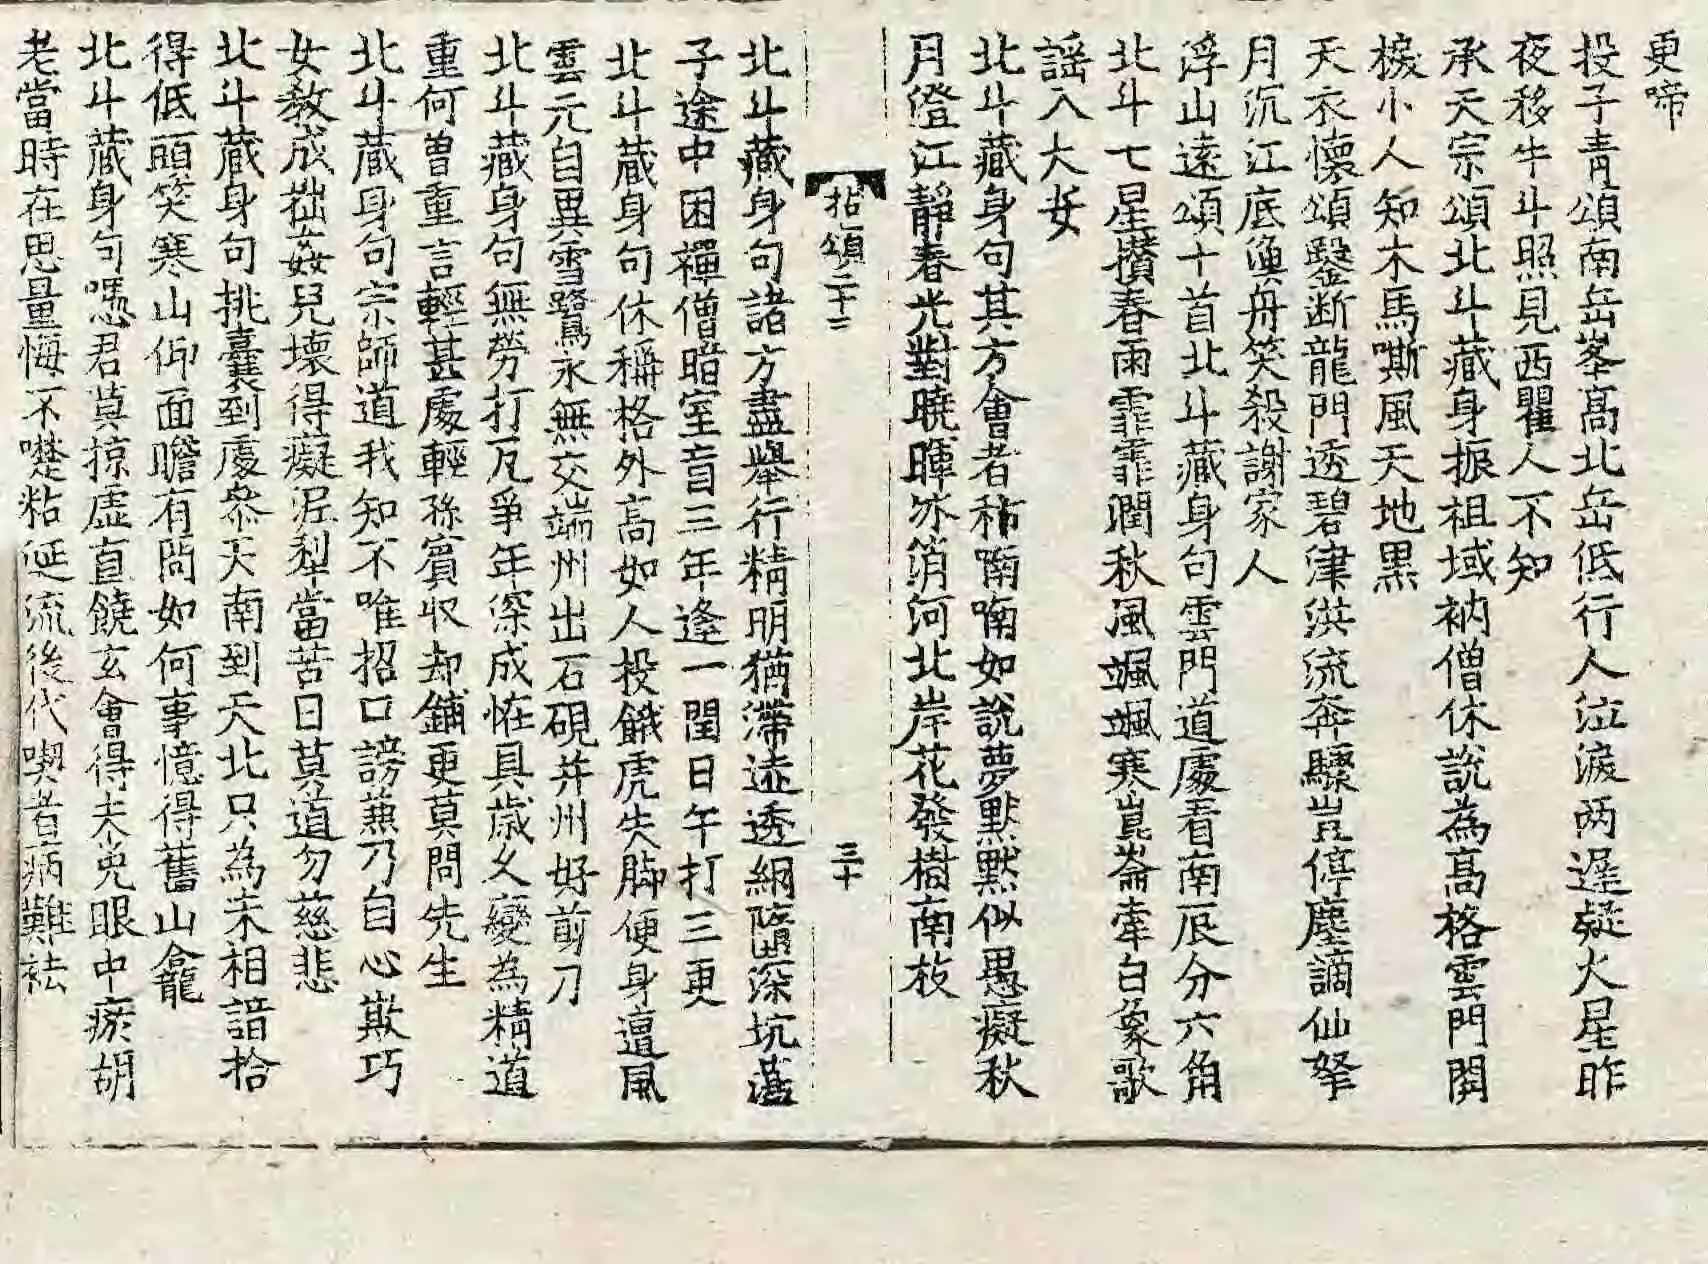 更啼
投子青頌南岳峯高北岳低行人泣淚两遲疑火星昨
夜移牛斗照見西瞿人不知
承天宗頌北斗藏身振祖域衲僧休說為高格雲門関
棙小人知木馬嘶風天地黒
天衣懷頌鑿断龍門透碧津洪流奔驟豈停塵謫仙拏
月沉江底漁舟笑殺謝家人
浮山遠頌十首北斗藏身句雲門道處看南辰分六角
北斗七星攢春雨霏霏潤秋風颯颯寒崑崙牽白象歌
謡入大安
北斗藏身句其方會者稀喃喃如說夢默默似愚癡秋
月澄江靜春光對曉暉氷消河北岸花發樹南枝
拈頌二十二
三十
北斗藏身句諸方盡舉行精明猶滯迹透網墮深坑蕩
子途中困禪僧暗室盲三年逢一閏日午打三更
北斗蔵身句休稱格外高如人投餓虎失脚便身遭風
雲元自異雪鷺永無交端州出石硯并州好剪刀
北斗藏身句無勞打瓦爭年深成恠具歳久變為精道
重何曽重言輕甚處輕孫賓収却鋪更莫問先生
北斗蔵身句宗師道我知不唯招口謗兼乃自心欺巧
女教成拙姦兒壊得癡泥犁當苦日莫道勿慈悲
北斗蔵身句挑囊到處叅天南到天北只為未相諳拾
得低頭笑寒山仰面瞻有問如何事憶得舊山龕
北斗蔵身句慿君莫掠虚直饒玄會得未免眼中瘀胡
老當時在思量悔不噇粘延流後代喫着病難祛